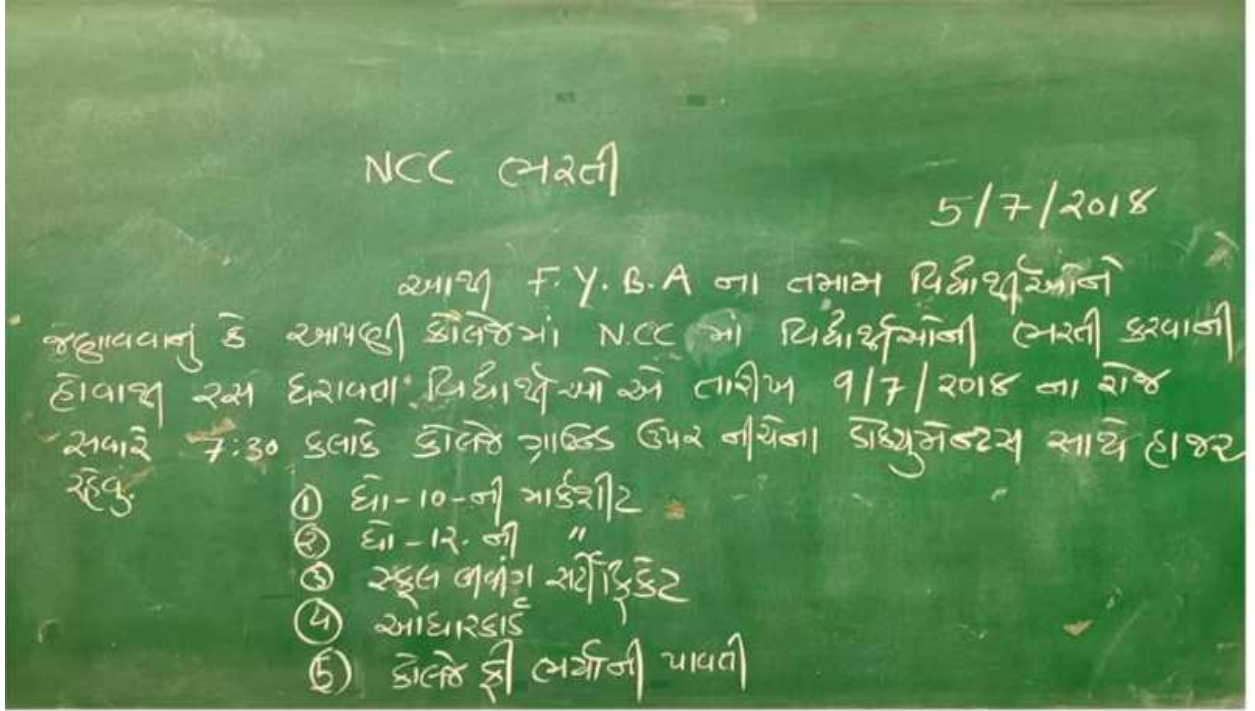 NCC ભરતી
5/7/૨૦૧૪
આથી F.Y.B.A ના તમામ વિદ્યાર્થીઓને
જણાવવાનું કે આપણી કોલેજમાં N.CC માં વિદ્યાર્થીઓની ભરતી કરવાની
હોવાથી રસ ધરાવતા વિદ્યાર્થીઓએ તારીખ 9/7/૨૦૧૪ ના રોજ
સવારે 7:30 કલાકે કોલેજ ગ્રાઉન્ડ ઉપર નીચેના ડોક્યુમેન્ટસ સાથે હાજર
રહેવું.
① ધો-૧૦-ની માર્કશીટ
② ધો-૧૨. ની "
③ સ્કૂલ લીવીંગ સર્ટીફિકેટ
④ આધારકાર્ડ
⑤ કોલેજ ફી ભર્યાની પાવતી